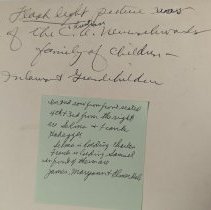 Flash light picture was
of the C.A. Neuenschwander
family of Children
Inlaws & Grandchildren
2nd row from front seated
4th & 3rd from the right
are Selma & Frank
Selma is holding Charles
Frank is holding Samuel
in front of them are
James, Margaret &